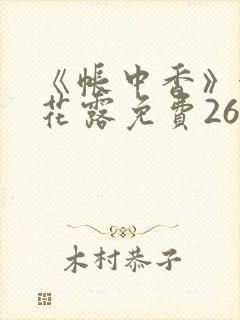 《帳中香》
花露免費26
木村恭子